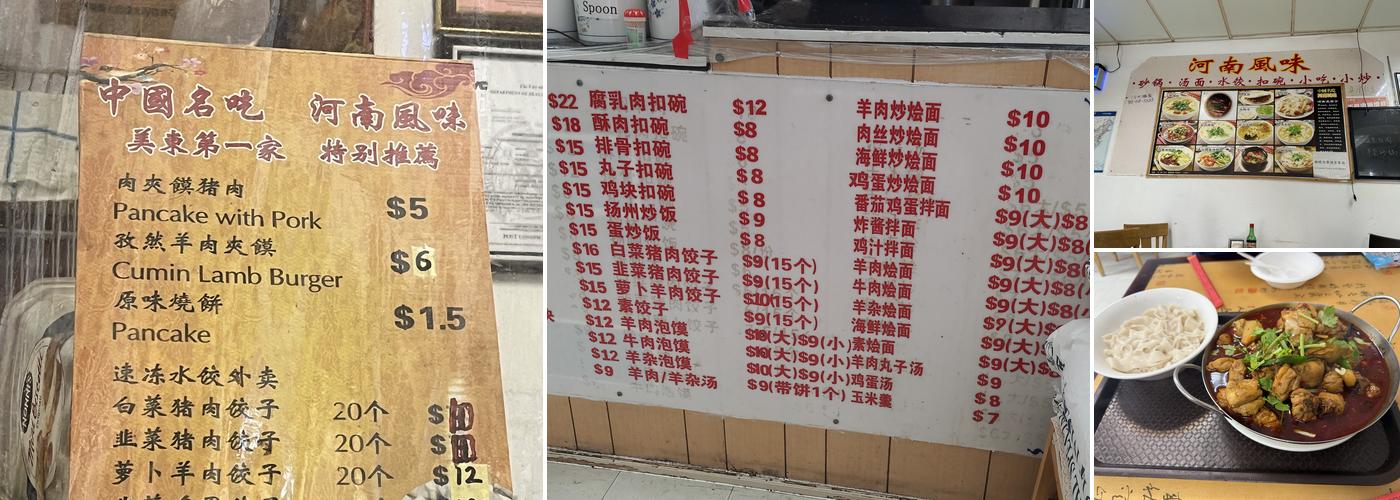 中國名吃 河南風味
美東第一家 特别推薦
肉夾饃猪肉
Pancake with Pork $5
孜然羊肉夾饃
Cumin Lamb Burger $6
原味燒餅
Pancake $1.5
速冻水饺外卖
白菜猪肉饺子 20个
韭菜猪肉饺子 20个
萝卜羊肉饺子 20个 $12
Spoon
$22 腐乳肉扣碗 $12 羊肉炒烩面 $10
$18 酥肉扣碗 $8 肉丝炒烩面 $10
$15 排骨扣碗 $8 海鲜炒烩面 $10
$15 丸子扣碗 $8 鸡蛋炒烩面 $10
$15 鸡块扣碗 $8 番茄鸡蛋拌面 $9(大)$8
$15 扬州炒饭 $9 炸酱拌面 $9(大)$8(
$15 蛋炒饭 $8 鸡汁拌面 $9(大)$8(
$16 白菜猪肉饺子 $9(15个) 羊肉烩面 $9(大)$8(
$15 韭菜猪肉饺子 $9(15个) 牛肉烩面 $9(大)$8(
$15 萝卜羊肉饺子 $10(15个) 羊杂烩面 $9(大)$8(
$12 素饺子 $9(15个) 海鲜烩面 $9(大)$8
$12 羊肉泡馍 $10(大)$9(小) 素烩面 $9(大)$8
$12 牛肉泡馍 $10(大)$9(小) 羊肉丸子汤 $9
$12 羊杂泡馍 $10(大)$9(小) 鸡蛋汤 $8
$9 羊肉/羊杂汤 $9(带饼1个) 玉米羹 $7
河南風味
·砂锅·汤面·水饺·扣碗·小吃·小炒·